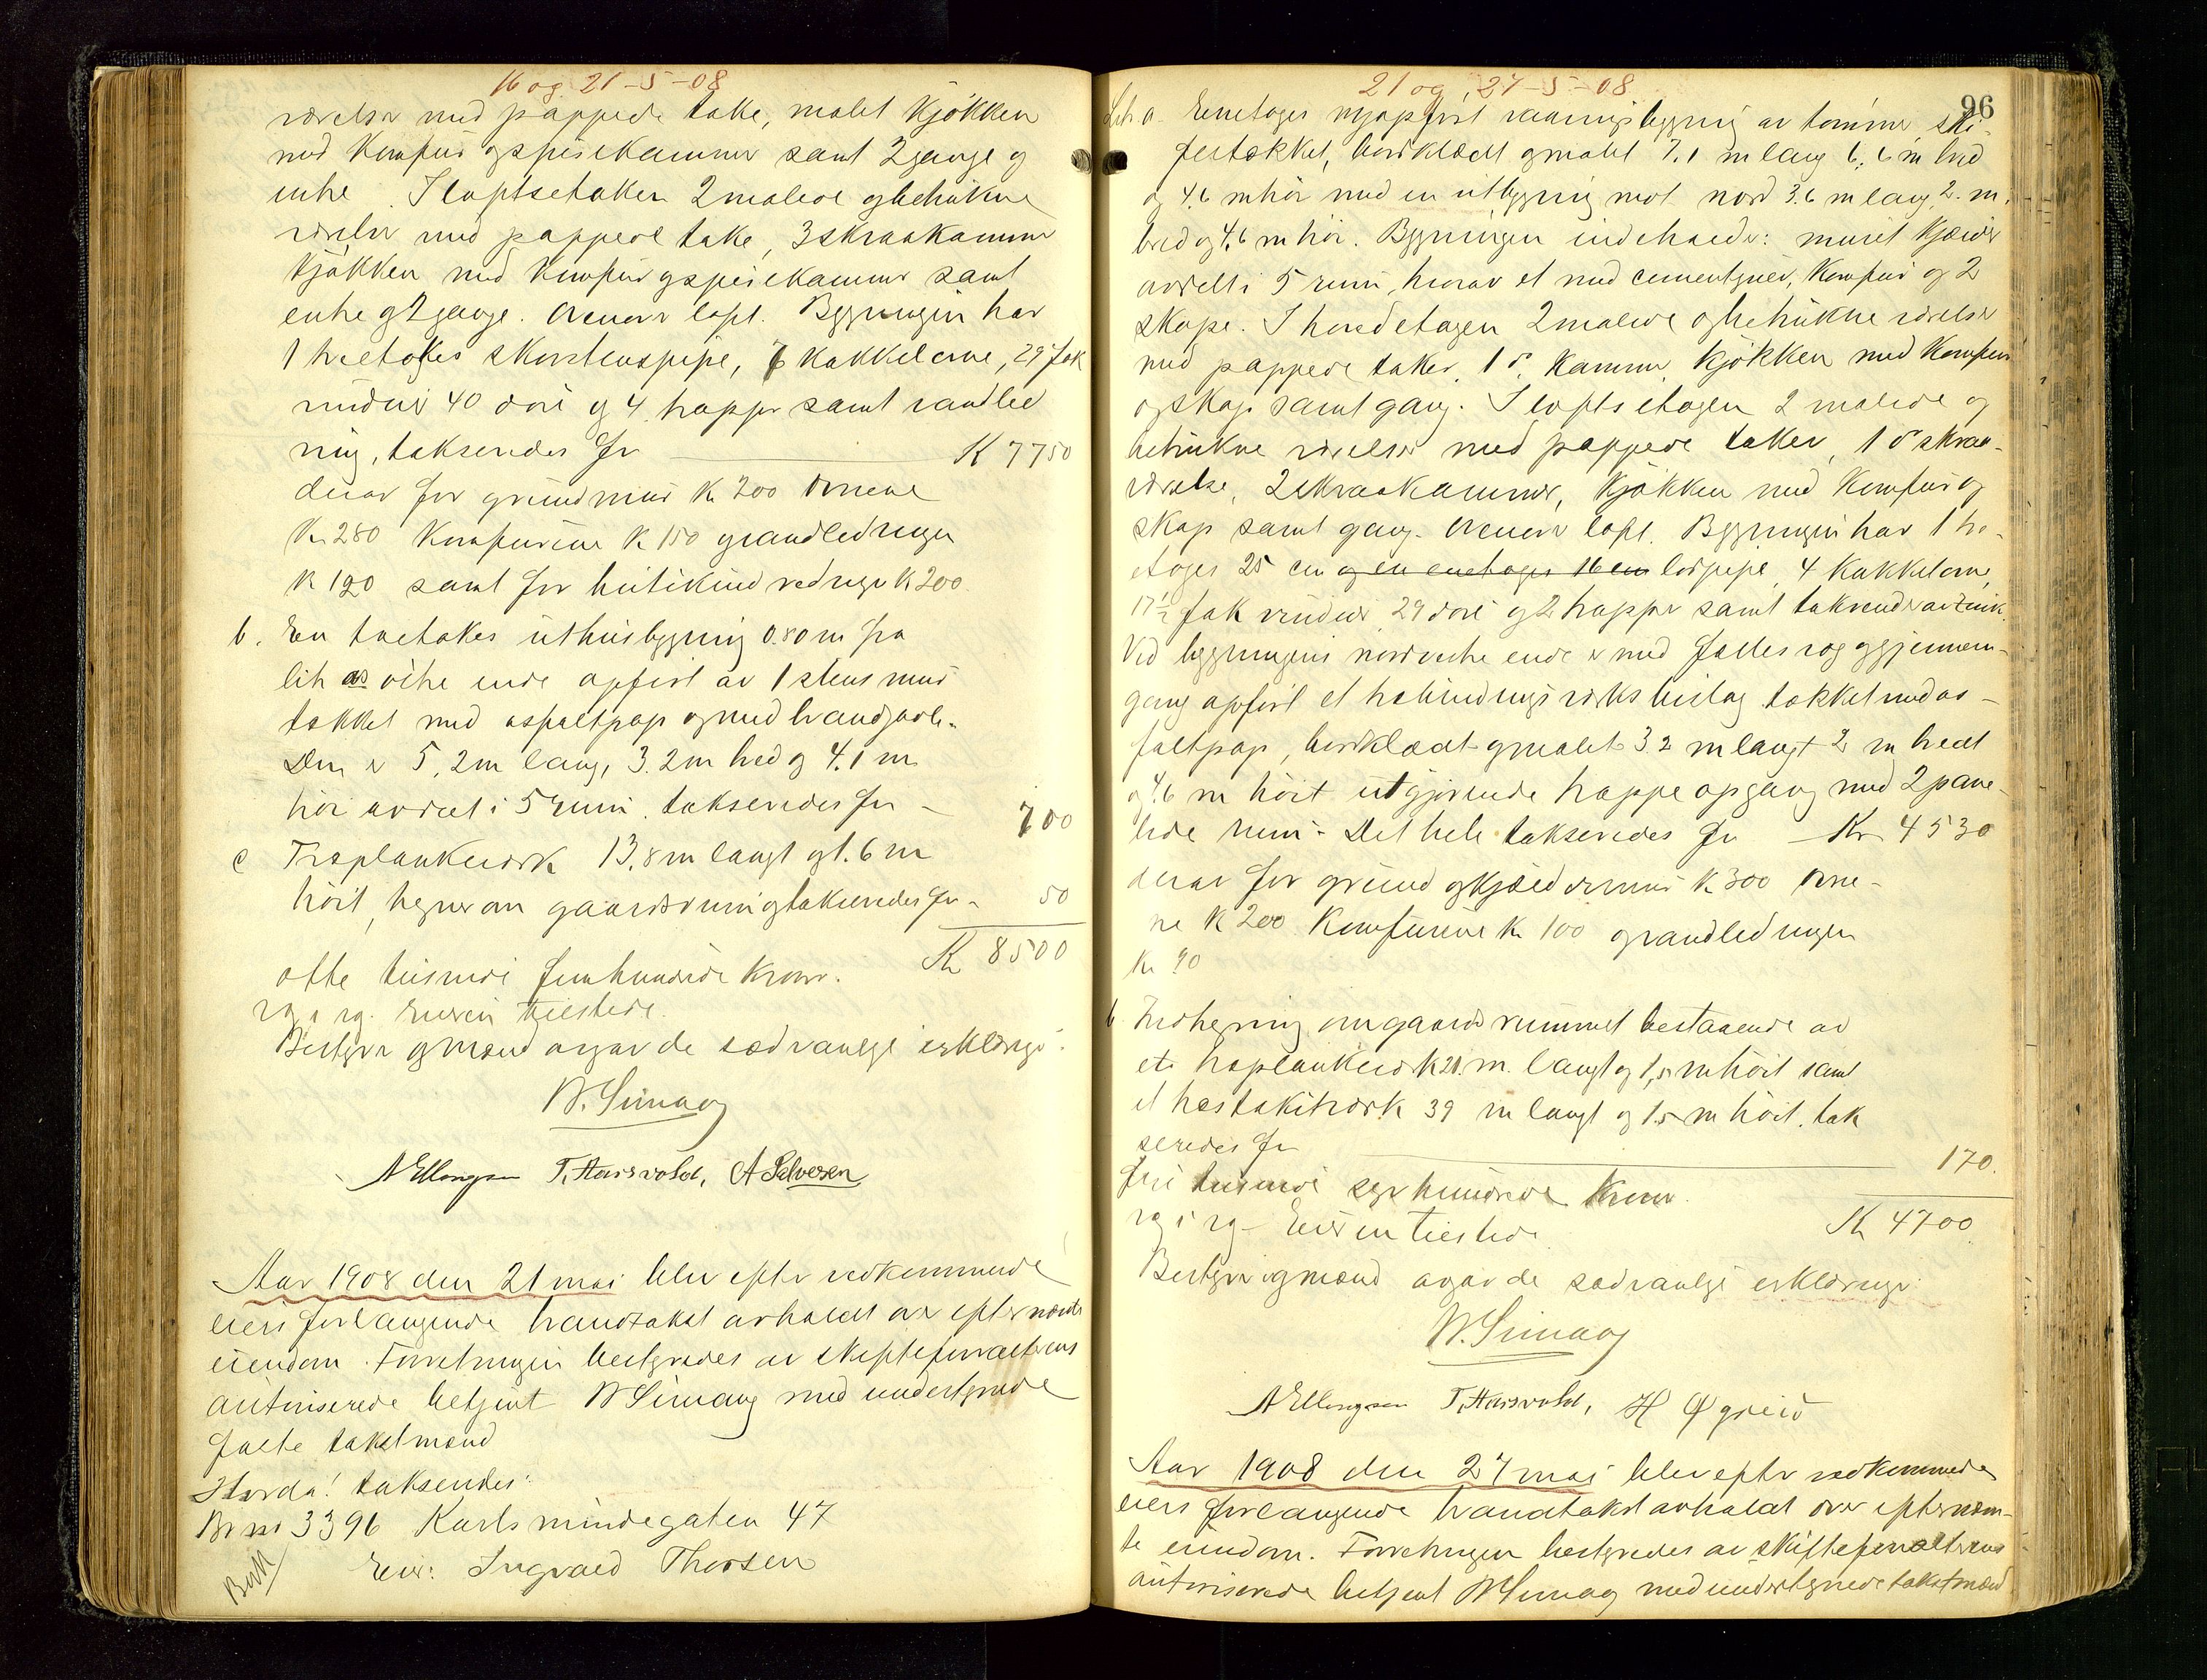 16 og 21-5-08
værelser med pappede take, malet kjøkken
med komfur og spisekammer samt 2 gange og
entre. I loftsetaken 2 malede og betrukne
værelser med pappede take, 3 skraakammer
kjøkken med komfur og spisekammer samt
entre og 2 gange. Øverst loft. Bygningen har
1 treetages skorstenspipe, 6 kakkelovne, 29 fak
vinduer 40 döre og 4 trapper samt vandled
ning, takseredes for K 7750
derav for grundmur Kr 200 ovnene
Kr 280 komfurene K 150 vandledningen
K 120 samt for butikindredninge K 200.
b. En toetakes uthusbygning 0.80 m fra
lit a's østre ende opført av 1 stens mur
tækket med asfaltpap og med brandgavle.
Den er 5,2 m lang, 3.2 m bred og 4.1 m
höi avdelt i 5 rum. takseredes for - 700
c Træplankeverk 13,8 m langt og 1.6 m
höit, hegner om gaardsrum og takseredes for - 50
Kr 8500
otte tusinde femhundrede kroner.
Eieren tilstede.
Bestyrer og mænd avgav de sædvanlige erklæringer.
W. Simaog
A Ellingsen T. Aarsvold, A Salvesen
Aar 1908 den 21 mai blev efter vedkommende
eiers forlangende brandtakst avholdt over efternævnte
eiendom. Forretningen bestyredes av skifteforvalterens
autoriserede betjent W Simaog med undertegnede
faste takstmænd
Hvorda! takseredes:
Br no 3396 Karlsmindegaten 47
Eier: Ingvald Thorsen
21 og 27-5-08
96
Lit. a. Enetages nyopført vaaningsbygning av tømmer ski-
fertækket, bordklædt og malet 7.1 m lang 6,6 m bred
og 4.6 m höi med en utbygning mot nord 3.6 m lang, 2. m.
bred og 4,6 m höi. Bygningen indeholder: muret kjælder
avdelt i 5 rum, hvorav et med cementgulv, komfur og 2
skape. I hovedetagen 2 malede og betrukne værelser
med pappede taker, 1 d°. kammer, kjøkken med komfur
og skap samt gang. I loftsetagen 2 malede og
betrukne værelser med pappede taker, 1 d° skraa-
værelse, 2 skraakammer, kjøkken med komfur og
skap samt gang. Øverst loft. Bygningen har 1 tre-
etages 25 cm og en enetages 16 cm lödpipe, 4 kakkelovne,
17½ fak vinduer, 29 döre og 2 trapper samt takrender av zink.
Ved bygningens nordvestre ende er med fælles tag og gjennem-
gang opført et trebindingsverks bislag tækket med as-
faltpap, bordklædt og malet 3.2 m langt 2 m bredt
og 4.6 m höit utgjørende trappeopgang med 2 pane-
lede rum. Det hele takseredes for - Kr 4530
derav for grund og kjældermur Kr 300 ovne-
ne K 200 komfurene Kr 100 og vandledningen
Kr 90
b Indhegning om gaardsrummet bestaaende av
et træplankeverk 21. m. langt og 1,5 m höit samt
et træstakitverk 39 m langt og 1.5 m höit. tak
seredes for 170.
fire tusinde syv hundrede kroner.
Kr 4700
Eieren tilstede
Bestyrer og mænd avgav de sædvanlige erklæringer:
W. Simaog
A Ellingsen T. Aarsvold, H Øgreid
Aar 1908 den 27 mai blev efter vedkommende
eiers forlangende brandtakst avholdt over efternævn-
te eiendom. Forretningen bestyredes av skifteforvalterens
autoriserede betjent W Simaog med undertegnede takstmænd